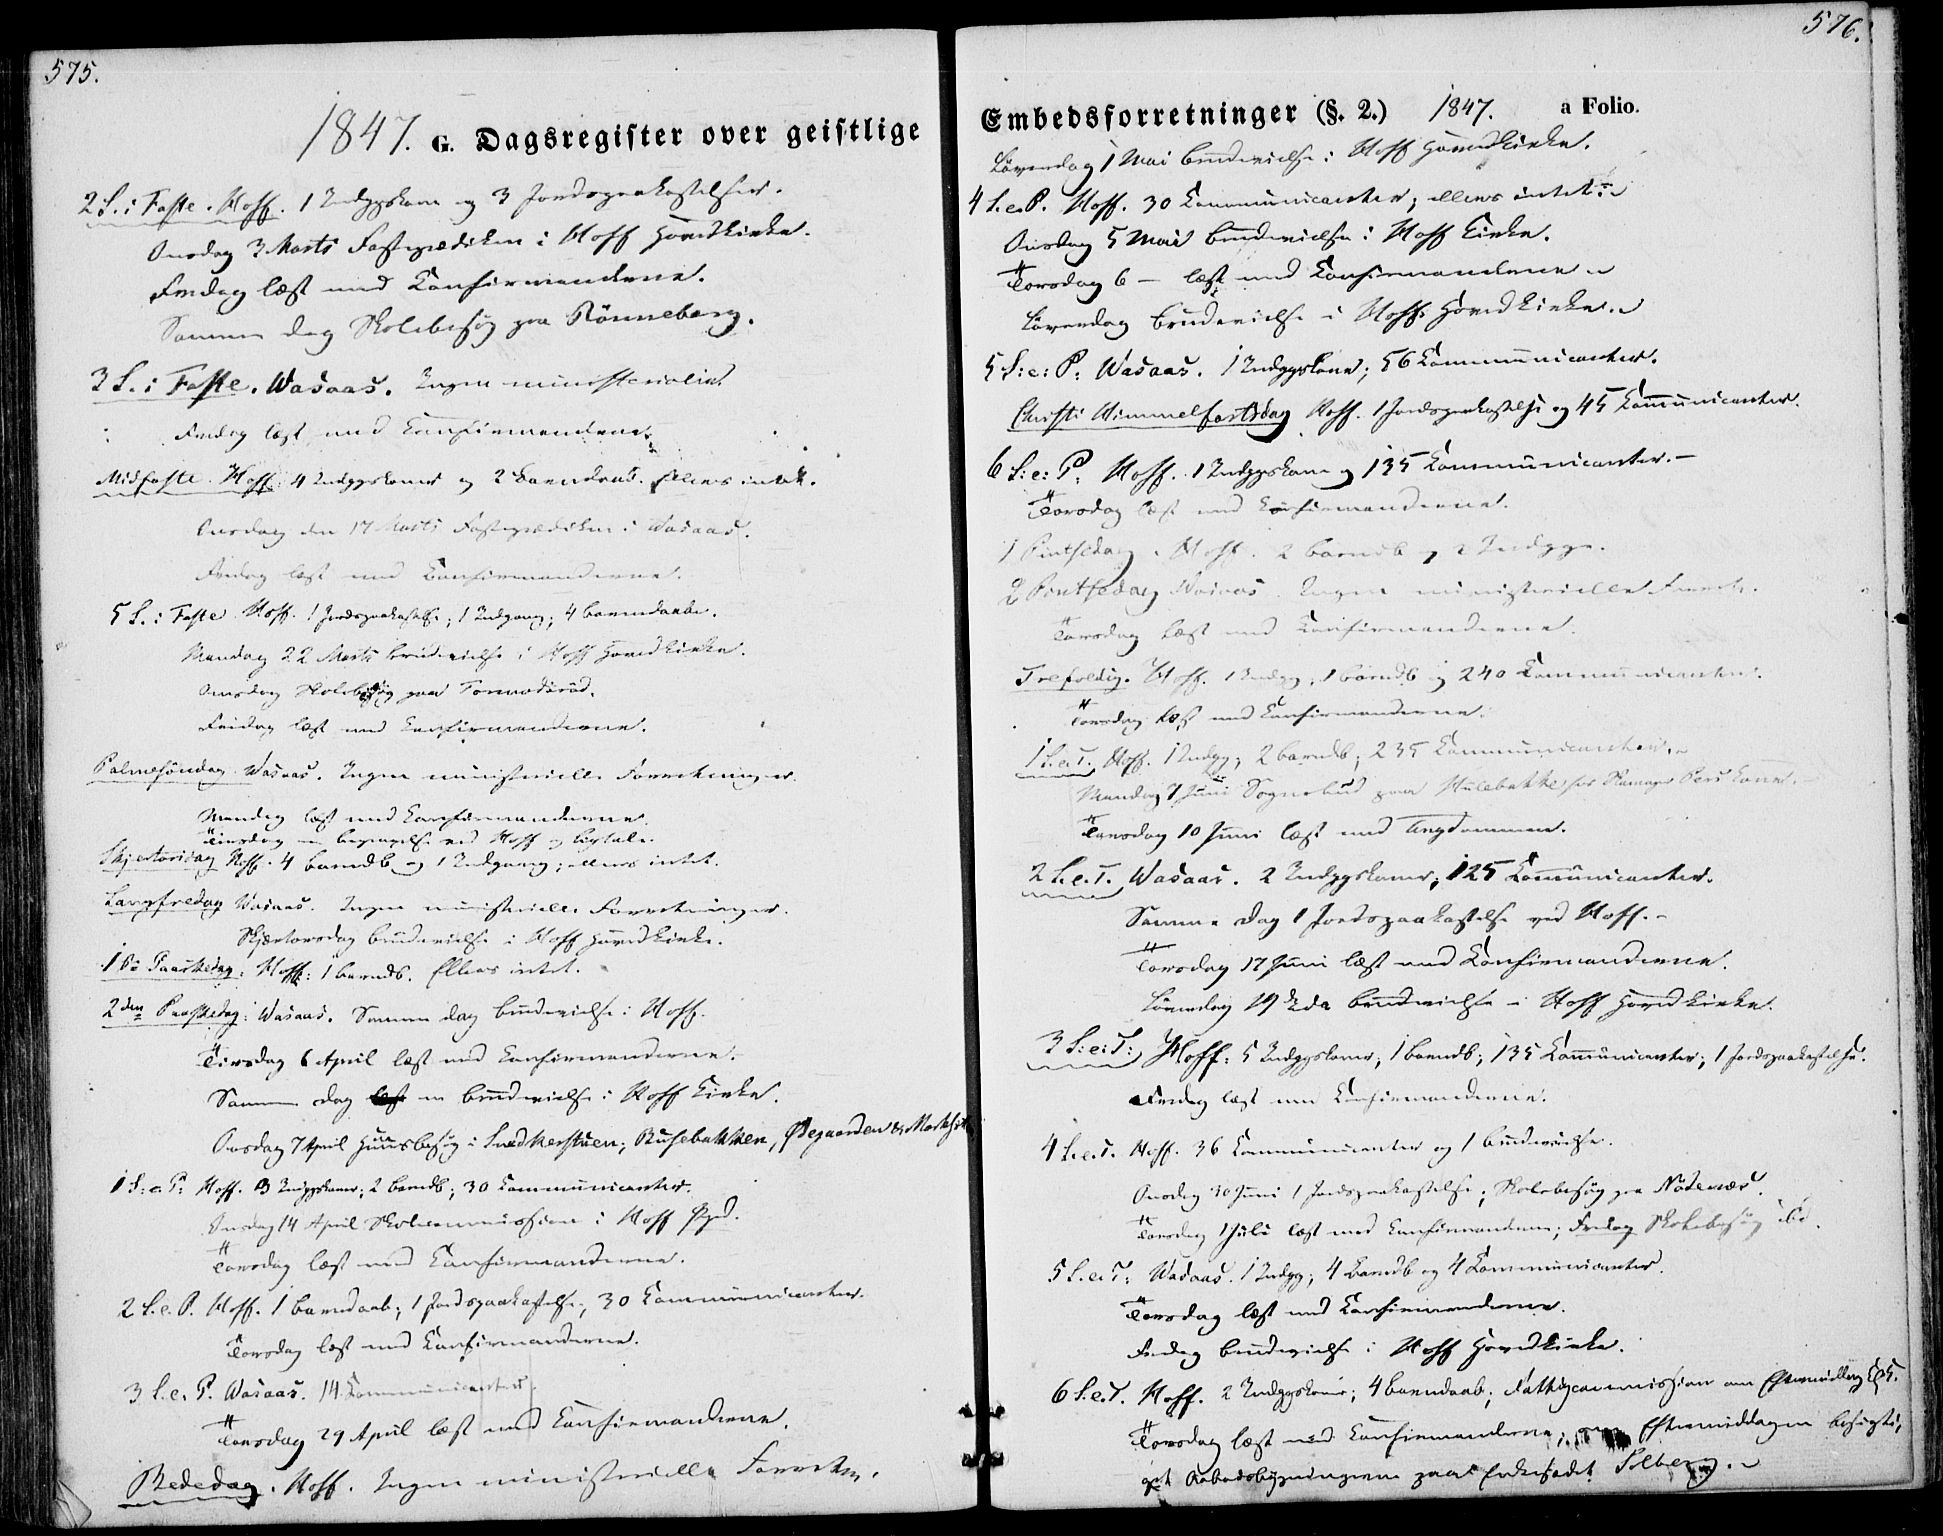 575.
1847. G. Dagsregister over geistlige
2 S. i Faste. Hoff. 1 Indggskone og 3 Jordspaakastelser.
Onsdag 3 Marts Fasteprædiken i Hoff Hovedkirke.
Fredag læst med Confirmanderne.
Samme Dag Skolebesøg paa Rönneberg.
3 S. i Faste. Wasaas. Ingen ministerialia.
Fredag læst med Confirmanderne.
Midfaste. Hoff. 4 Indggskoner og 2 Barnedaab. Ellers intet.
Onsdag den 17 Marts Fasteprædiken i Wasaas.
Fredag læst med Confirmanderne.
5 S. i Faste Hoff. 1 Jordspaakastelse; 1 Indgang; 4 Barnedaabe.
Mandag 22 Marts Brudevielse i Hoff Hovedkirke.
Onsdag Skolebesøg paa
Fredag læst med Confirmanderne.
Palmesöndag. Wasaas. Ingen ministerielle Forretninger.
Mandag læst med Confirmanderne.
Tirsdag en Begravelse ved Hoff og Ligtale.
Skjertorsdag Hoff. 4 Barndb og 1 Indgang; ellers intet.
Langfredag Wasaas. Ingen ministerielle Forretninger.
Skjærtorsdag Brudevielse i Hoff Hovedkirke.
1ste Paaskedag: Hoff: 1 Barndb. Ellers intet.
2den Paaskedag: Wasaas. Samme Dag Brudevielse i Hoff.
Tirsdag 6 April læst med Confirmanderne.
Samme Dag en Brudevielse i Hoff Kirke.
Onsdag 7 April Huusbesøg i Snedkerstuen, Rusebakken, Øegaarden &
1 S. e. P: Hoff. 3 Indggskoner; 2 Barndb; 30 Communicanter.
Onsdag 14 April Skolecommission i Hoff Pgd.
Torsdag læst med Confirmanderne.
2 S. e. P. Hoff. 1 Barnedaab; 1 Jordspaakastelse; 30 Communicanter.
Torsdag læst med Confirmanderne.
3 S. e. P. Wasaas. 14 Communicanter.
Torsdag 29 April læst med Confirmanderne.
Bededag. Hoff. Ingen ministerielle Forretn.
576.
Embedsforretninger (§. 2.) 1847. a Folio.
Löverdag 1 Mai Brudevielse i Hoff Hovedkirke.
4 S. e. P. Hoff. 30 Communicanter; ellers intet.
Onsdag 5 Mai Brudevielse i Hoff Kirke.
Torsdag 6 – læst med Confirmanderne.
Löverdag Brudevielse i Hoffs Hovedkirke.
5 S: e: P: Wasaas. 1 Indggskone; 56 Communicanter.
Christi Himmelfartsdag Hoff. 1 Jordspaakastelse og 45 Communicanter.
6 S: e: P: Hoff. 1 Indggskone og 135 Communicanter. –
Torsdag læst med Confirmanderne.
1 Pintsedag. Hoff. 2 Barndb og 2 Indggs.
2 Pintsedag Wasaas. Ingen ministerielle Forretn.
Torsdag læst med Confirmanderne.
Trefoldig. Hoff. 1 Indgg; 1 Barndb og 240 Communicanter.
Torsdag læst med Confirmanderne.
1 S. e. T. Hoff. 1 Indgg; 2 Barndb; 235 Communicanter.
Mandag 7 Juni Sognebud paa Hulebakke hos Pers Kone.
Torsdag 10 Juni læst med Ungdommen.
2 S. e. T. Wasaas. 2 Indggskoner; 125 Communicanter.
Samme Dag 1 Jordspaakastelse ved Hoff. –
Torsdag 17 Juni læst med Confirmanderne.
Löverdag 19 Brudevielse i Hoff Hovedkirke.
3 S: e: T: Hoff: 5 Indggskoner; 1 Barndb; 135 Communicanter; 1 Jordspaakastelse.
Fredag læst med Confirmanderne.
4 S. e. T. Hoff. 36 Communicanter og 1 Brudevielse.
Onsdag 30 Juni 1 Jordspaakastelse; Skolebesøg paa
Torsdag 1 Juli læst med Confirmanderne; Fredag Skolebesøg
5 S. e. T: Wasaas. 1 Indgg; 4 Barndb og 4 Communicanter.
Torsdag læst med Confirmanderne.
Fredag Brudevielse i Hoff Hovedkirke.
6 S. e. T. Hoff. 2 Indggskoner; 4 Barnedaab; Fattigcommission om Eftermiddag
Torsdag læst med Confirmanderne; Eftermiddagen besigti-
get Aabodsbygningerne paa Enkesædet Solberg.